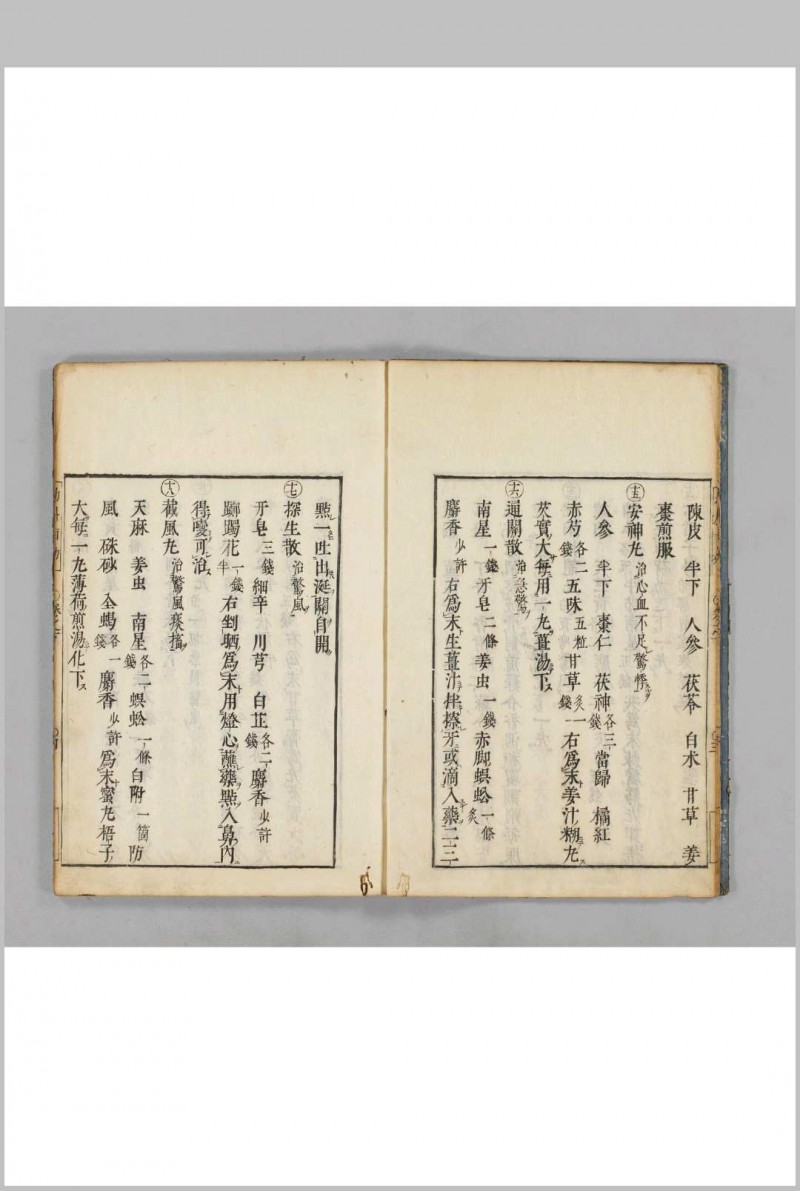 陳皮 半下 人參 茯苓 白朮 甘草 姜
棗煎服
十五 安神丸 治心血不足驚悸
人參 半下 棗仁 茯神各三錢 當歸 橘紅
赤芍各二錢 五味五粒 甘草炙一錢 右爲末姜汁糊丸
芡實大每用一丸薑湯下
十六 通關散 治急驚
南星一錢 牙皂二條 姜虫一錢 赤脚蜈蚣一條炙
麝香少許 右爲末生薑汁拌擦牙或滴入藥二三
㸃一吐出涎關自開
十七 探生散 治驚風
牙皂三錢 細辛 川芎 白芷各二錢 麝香少許
躑躅花一錢半 右剉晒爲末用燈心蘸藥㸃入鼻內
得嚏可治
十八 截風丸 治驚風痰搐
天麻 姜虫 南星各二錢 蜈蚣一條 白附一箇 防
風 硃砂 全蝎各一錢 麝香少許 爲末蜜丸梧子
大每一丸薄荷煎湯化下